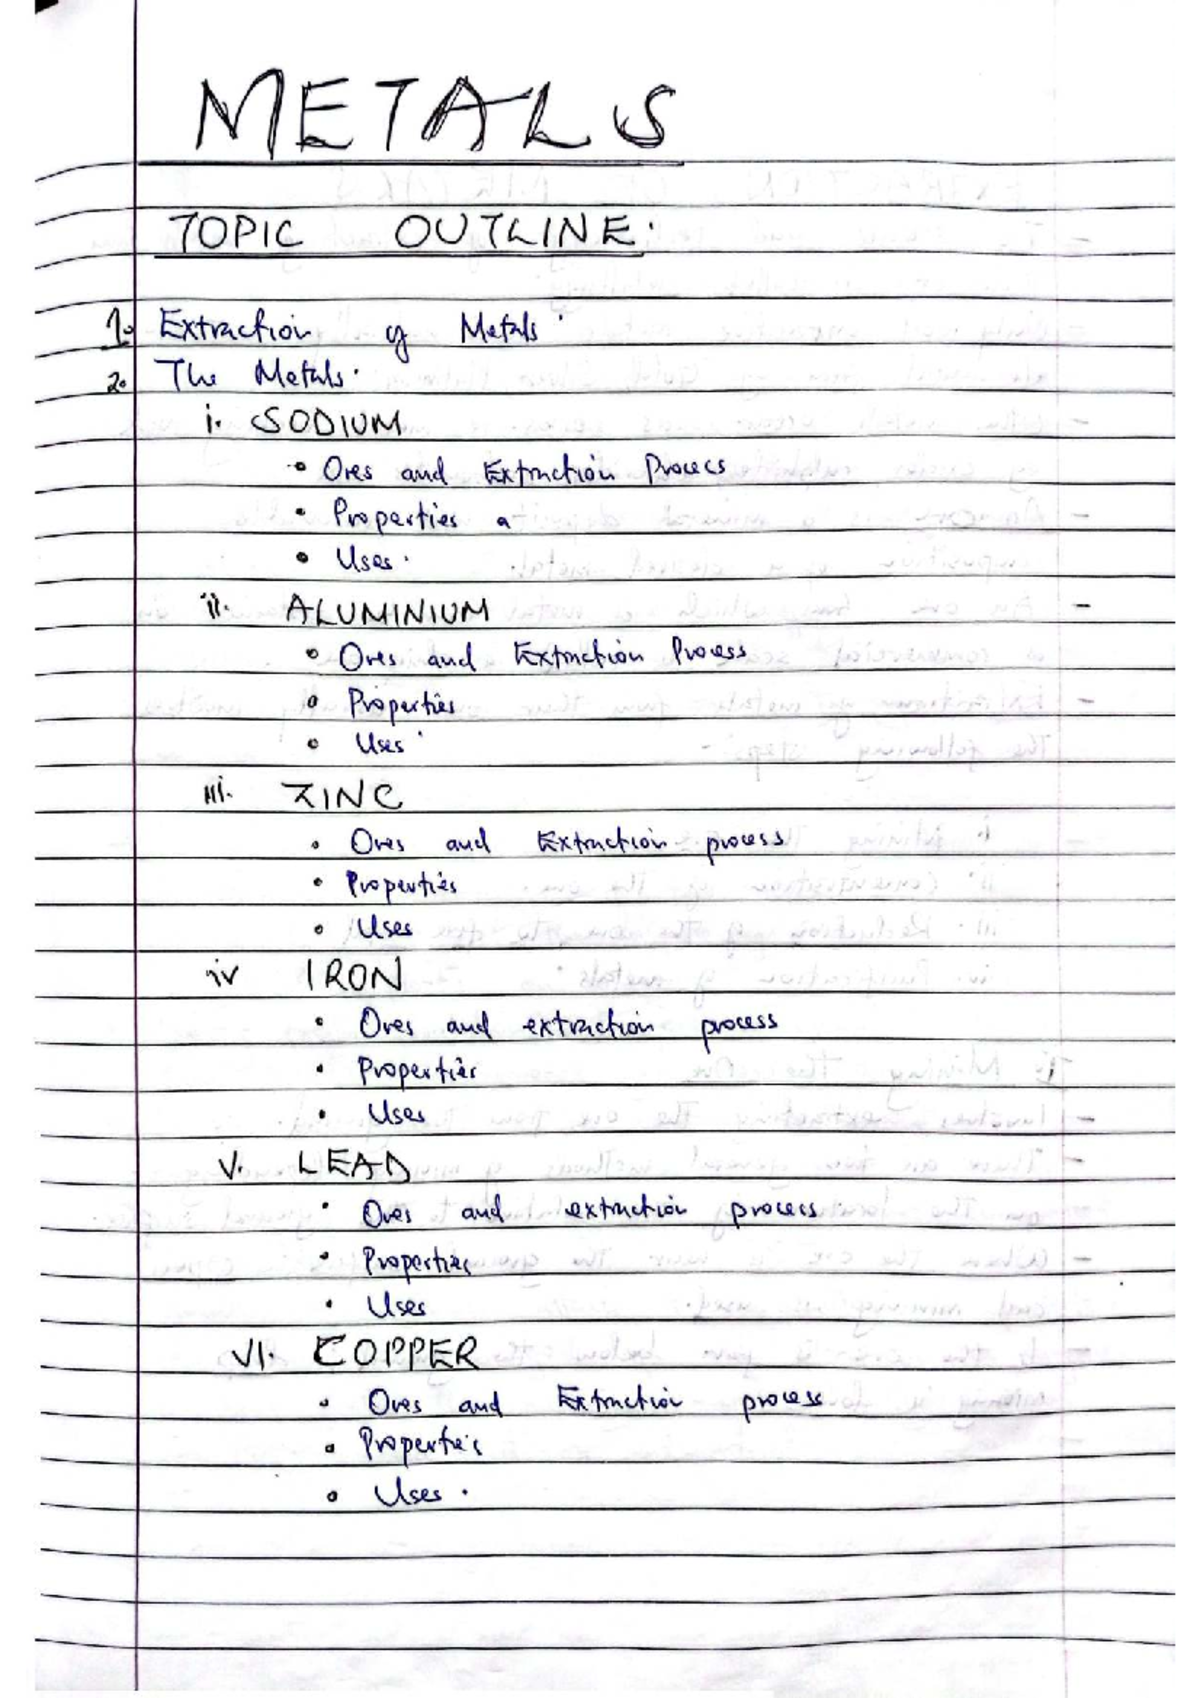 METALS
TOPIC OUTLINE.
1. Extraction of Metals
2. The Metals.
i. SODIUM
• Ores and Extraction Process
• Properties a
• Uses.
ii. ALUMINIUM
• Ores and Extraction Process
• Properties
• Uses
iii. ZINC
• Ores and Extraction process
• Properties
• Uses
iv IRON
• Ores and extraction process
• Properties
• Uses
v. LEAD
• Ores and extraction process
• Properties
• Uses
vi. COPPER
• Ores and Extraction process
• Properties
• Uses.